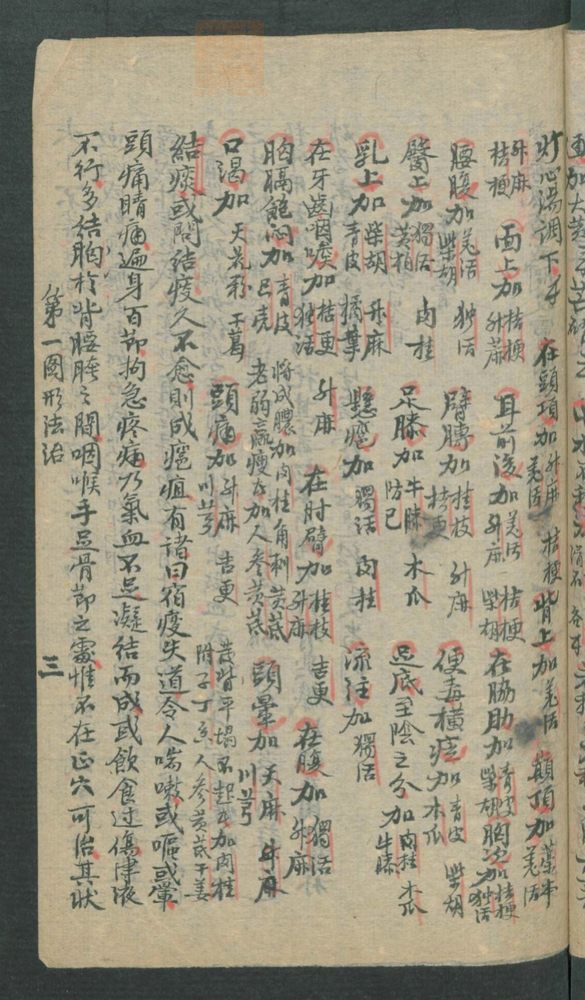 灯心湯調下
在頭項加升麻 羌活 桔梗 背上加羌活 顛頂加藁本 羌活
升麻 桔梗 面上加桔梗 升麻 耳前後加羌活 升麻 桔梗 柴胡 在脇肋加青皮 柴胡 胸次加桔梗 独活
腰腹加羌活 柴胡 独活 臂膊加桂枝 桔更 升麻 便毒橫痃加青皮 木瓜 柴胡
臀上加獨活 黄柏 肉桂 足膝加牛膝 防己 木瓜 足底至陰之分加肉桂 牛膝 木瓜
乳上加柴胡 青皮 升麻 橘葉 懸癰加獨活 肉桂 流注加獨活
在牙齒咽喉加桔更 独活 升麻 在肘臂加桂枝 升麻 吉更 在腹加獨活 升麻
胸膈飽悶加青皮 只壳 將成膿加肉桂角刺 黄芪 老弱羸瘦加人參黄芪 頭暈加天麻 川芎 升麻
口渴加天花粉 干葛 頭痛加升麻 川芎 吉更 背平塌不起加肉桂 附子丁 人參黄芪干姜
結痰或問結痰久不愈則成癰疽有諸曰宿痰失道令人喘嗽或嘔或暈
頭痛睛痛遍身百節拘急疼痛乃氣血不足凝結而成或飲食过傷津液
不行多結胸於背腰腌之間咽喉手足骨節之處惟不在正穴可治其状
第一圖形法治 三